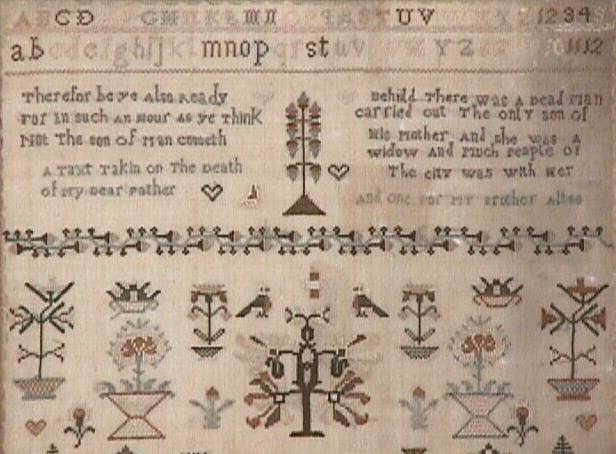 ABCD GHIKLMN UV 1234
abcdefghijklmnopqrstuv YZ 1112
Therefor be ye Also Ready
For in such an Hour as ye think
Not The son of Man cometh
A Taxt Takin on The Death
of My Dear Father
Behild There was a Dead Man
carried out The only son of
His Mother And she was A
widow And Much peaple of
The city was with Her
And one For My Brother Allso